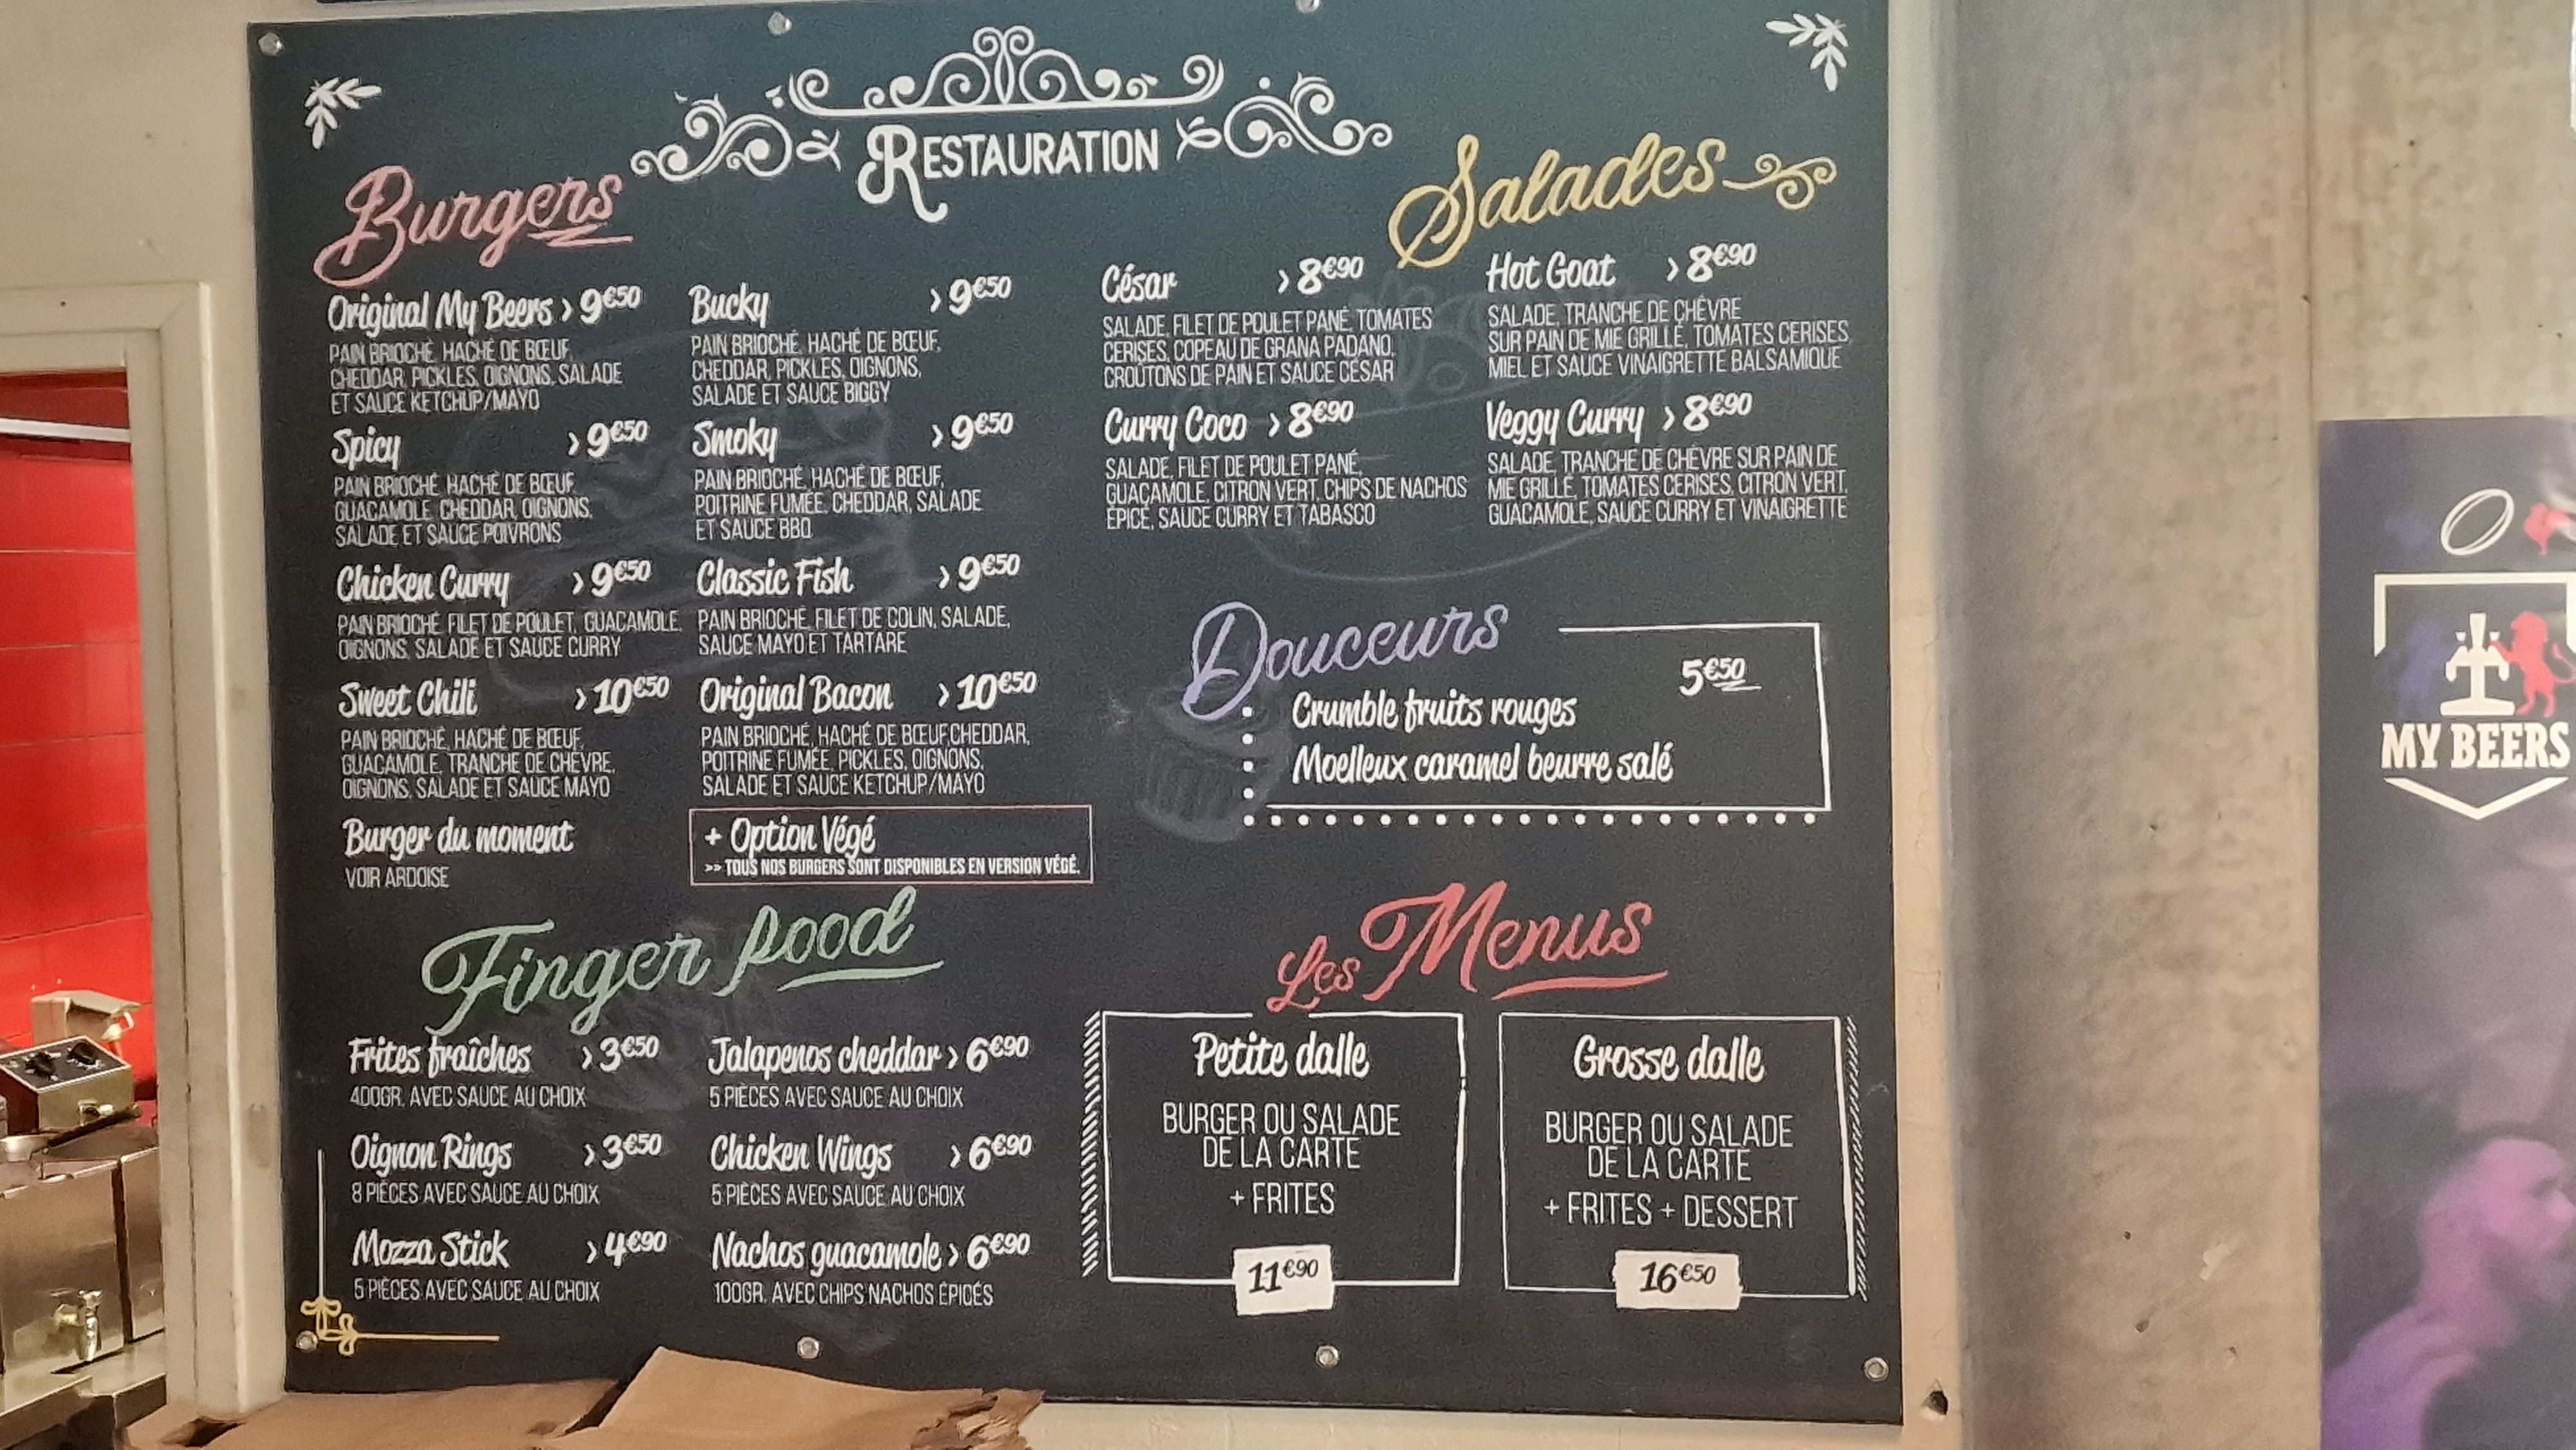 RESTAURATION
Burgers
Original My Beers > 9€50
PAIN BRIOCHÉ, HACHÉ DE BŒUF,
CHEDDAR, PICKLES, OIGNONS, SALADE
ET SAUCE KETCHUP/MAYO
Spicy > 9€50
PAIN BRIOCHÉ, HACHÉ DE BŒUF,
GUACAMOLE, CHEDDAR, OIGNONS,
SALADE ET SAUCE POIVRONS
Chicken Curry > 9€50
PAIN BRIOCHÉ, FILET DE POULET, GUACAMOLE,
OIGNONS, SALADE ET SAUCE CURRY
Sweet Chili > 10€50
PAIN BRIOCHÉ, HACHÉ DE BŒUF,
GUACAMOLE, TRANCHE DE CHÈVRE,
OIGNONS, SALADE ET SAUCE MAYO
Burger du moment
VOIR ARDOISE
Bucky > 9€50
PAIN BRIOCHÉ, HACHÉ DE BŒUF,
CHEDDAR, PICKLES, OIGNONS,
SALADE ET SAUCE BIGGY
Smoky > 9€50
PAIN BRIOCHÉ, HACHÉ DE BŒUF,
POITRINE FUMÉE, CHEDDAR, SALADE
ET SAUCE BBQ
Classic Fish > 9€50
PAIN BRIOCHÉ, FILET DE COLIN, SALADE,
SAUCE MAYO ET TARTARE
Original Bacon > 10€50
PAIN BRIOCHÉ, HACHÉ DE BŒUF,CHEDDAR,
POITRINE FUMÉE, PICKLES, OIGNONS,
SALADE ET SAUCE KETCHUP/MAYO
+ Option Végé
>> TOUS NOS BURGERS SONT DISPONIBLES EN VERSION VÉGÉ.
Finger food
Frites fraîches > 3€50
400GR. AVEC SAUCE AU CHOIX
Oignon Rings > 3€50
8 PIÈCES AVEC SAUCE AU CHOIX
Mozza Stick > 4€90
5 PIÈCES AVEC SAUCE AU CHOIX
Jalapenos cheddar > 6€90
5 PIÈCES AVEC SAUCE AU CHOIX
Chicken Wings > 6€90
5 PIÈCES AVEC SAUCE AU CHOIX
Nachos guacamole > 6€90
100GR. AVEC CHIPS NACHOS ÉPICÉS
Salades
César > 8€90
SALADE, FILET DE POULET PANÉ, TOMATES
CERISES, COPEAU DE GRANA PADANO,
CROÛTONS DE PAIN ET SAUCE CÉSAR
Curry Coco > 8€90
SALADE, FILET DE POULET PANÉ,
GUACAMOLE, CITRON VERT, CHIPS DE NACHOS
ÉPICÉ, SAUCE CURRY ET TABASCO
Hot Goat > 8€90
SALADE, TRANCHE DE CHÈVRE
SUR PAIN DE MIE GRILLÉ, TOMATES CERISES,
MIEL ET SAUCE VINAIGRETTE BALSAMIQUE
Veggy Curry > 8€90
SALADE, TRANCHE DE CHÈVRE SUR PAIN DE
MIE GRILLÉ, TOMATES CERISES, CITRON VERT,
GUACAMOLE, SAUCE CURRY ET VINAIGRETTE
Douceurs
5€50
Crumble fruits rouges
Moelleux caramel beurre salé
Les Menus
Petite dalle
BURGER OU SALADE
DE LA CARTE
+ FRITES
11€90
Grosse dalle
BURGER OU SALADE
DE LA CARTE
+ FRITES + DESSERT
16€50
MY BEERS